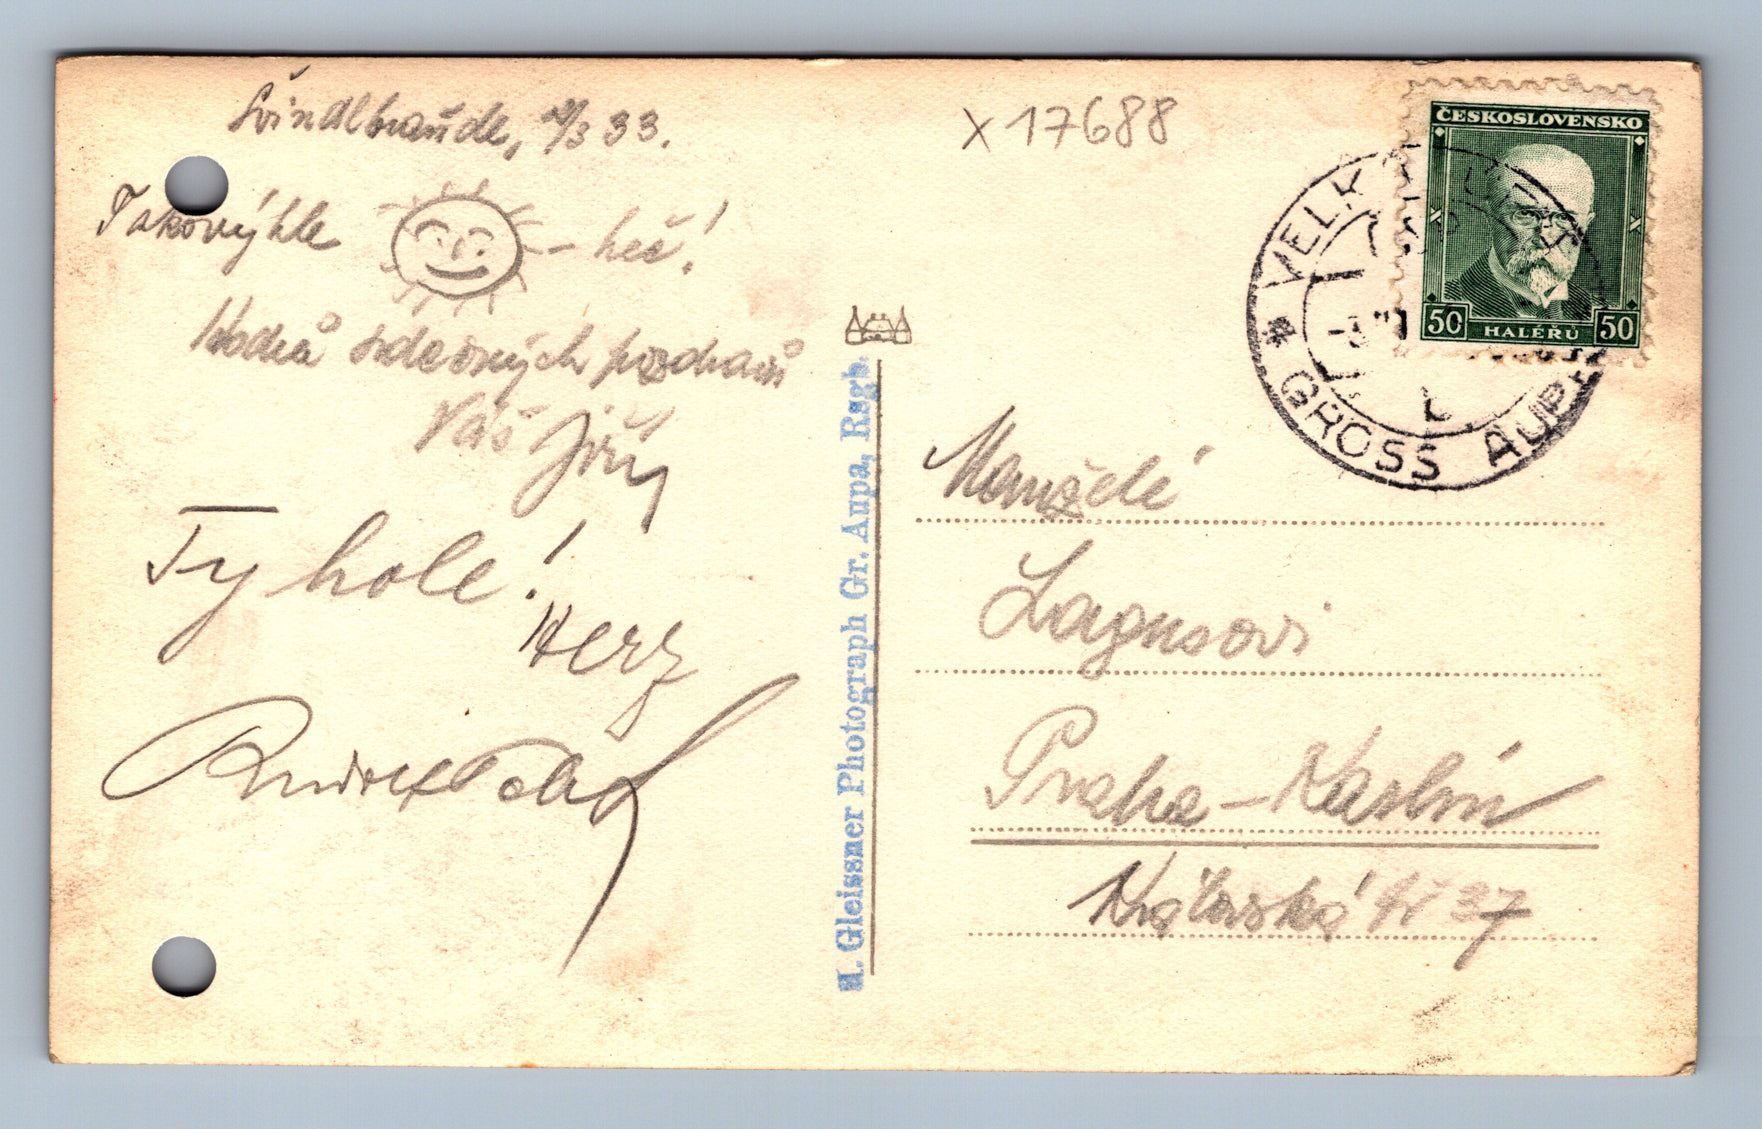 Švindlbaude, 2/3 33.
Takovýhle - heč!
Hodně srdečných pozdravů
Váš Jiří
Ty hole!
Herz
X 17688
ČESKOSLOVENSKO
50 HALÉŘŮ 50
* VELKÁ ÚPA
GROSS AUPA
H. Gleissner Photograph Gr. Aupa, Rsgb.
Manželé
Lagusovi
Praha - Karlín
Královská 37